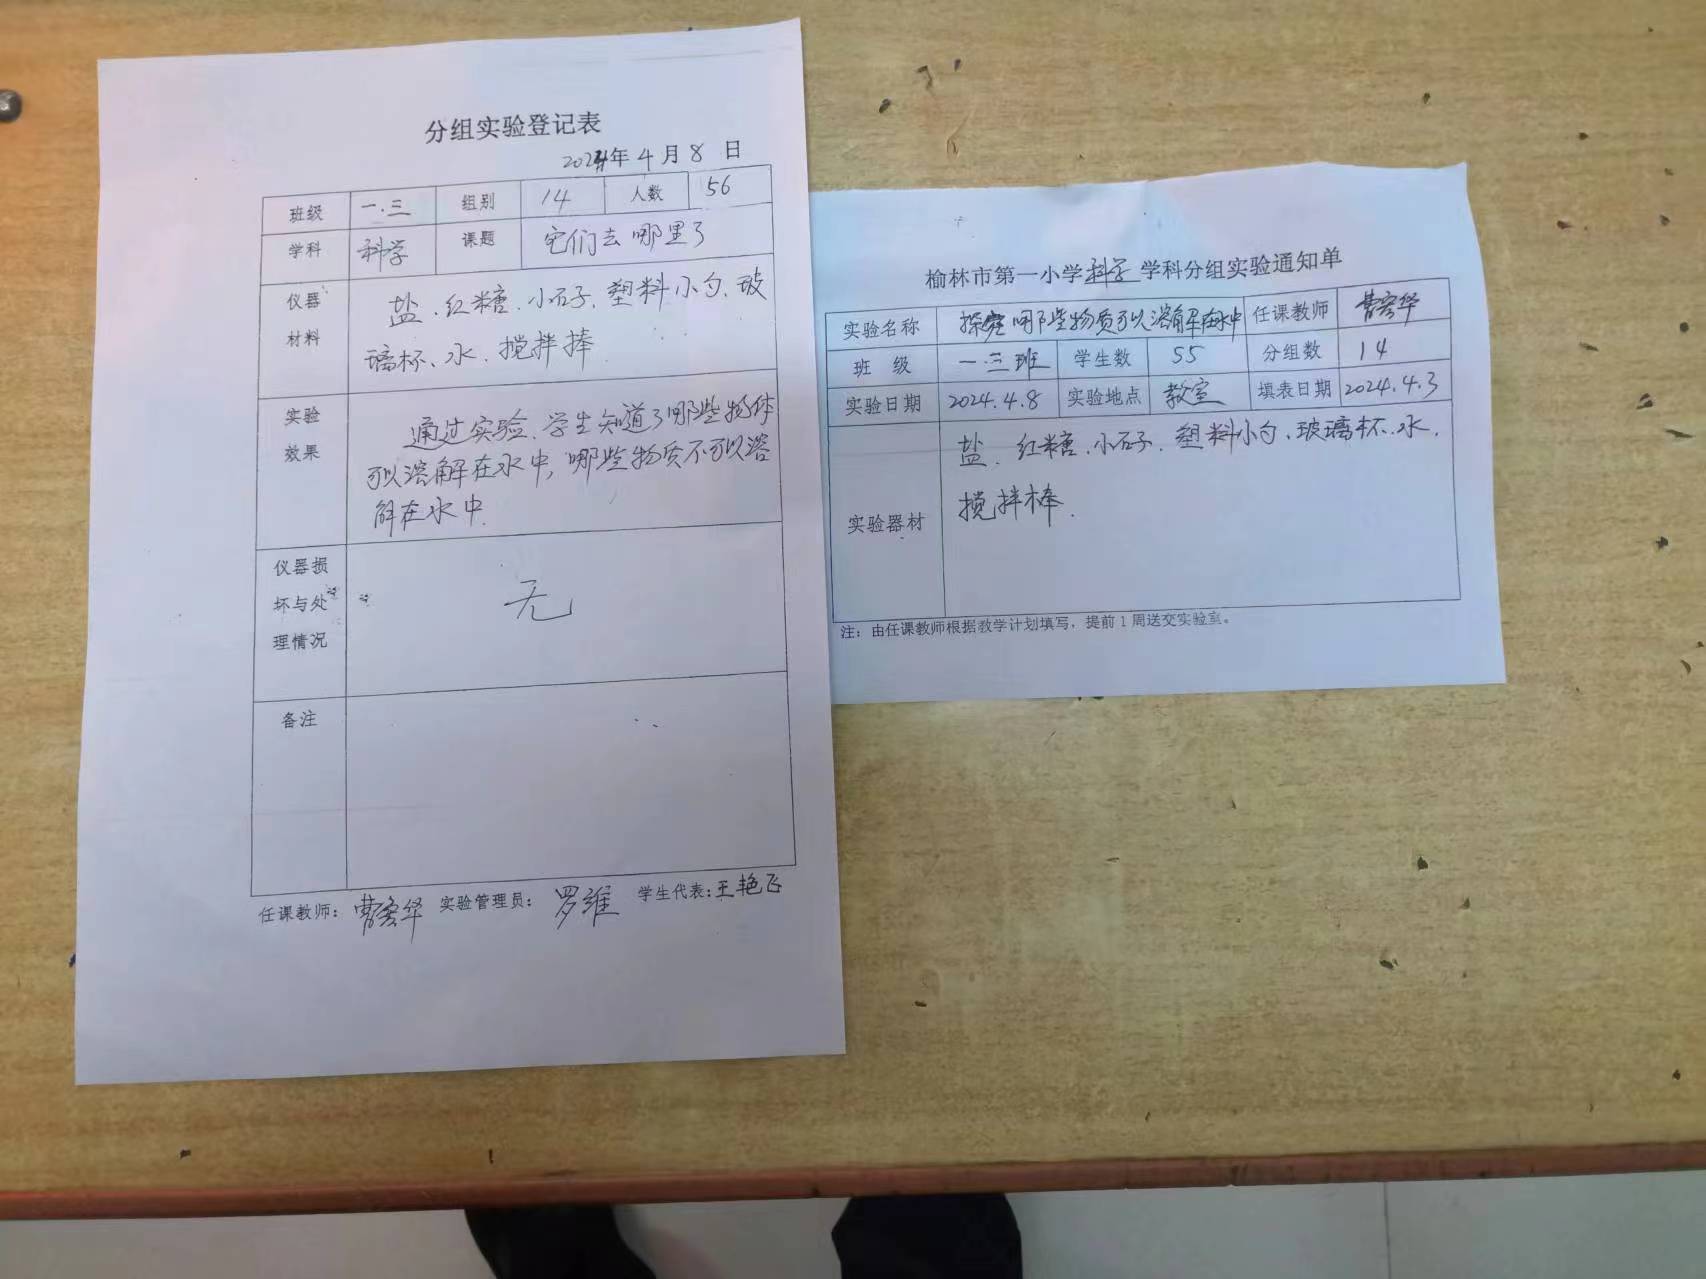 分组实验登记表
2024年 4 月 8 日
班级 一.三 组别 14 人数 56
学科 科学 课题 它们去哪里了
仪器材料 盐、红糖、小石子、塑料小勺、玻
璃杯、水、搅拌棒
实验效果 通过实验、学生知道了哪些物体
可以溶解在水中,哪些物质不可以溶
解在水中.
仪器损坏与处理情况 无
备注
任课教师: 曹 华 实验管理员: 罗维 学生代表:王艳飞
榆林市第一小学科学学科分组实验通知单
实验名称 探究哪些物质可以溶解在水中 任课教师 曹 华
班 级 一.三班 学生数 55 分组数 14
实验日期 2024.4.8 实验地点 教室 填表日期 2024.4.3
实验器材 盐、红糖、小石子、塑料小勺、玻璃杯、水、
搅拌棒.
注:由任课教师根据教学计划填写,提前1周送交实验室。